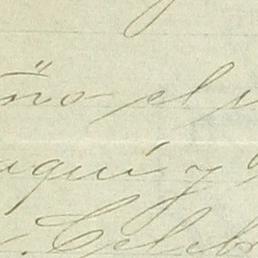 ño el
aquí y
Celeb